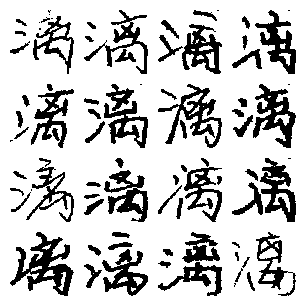 漓漓漓漓
漓漓漓漓
漓漓漓漓
漓漓漓漓